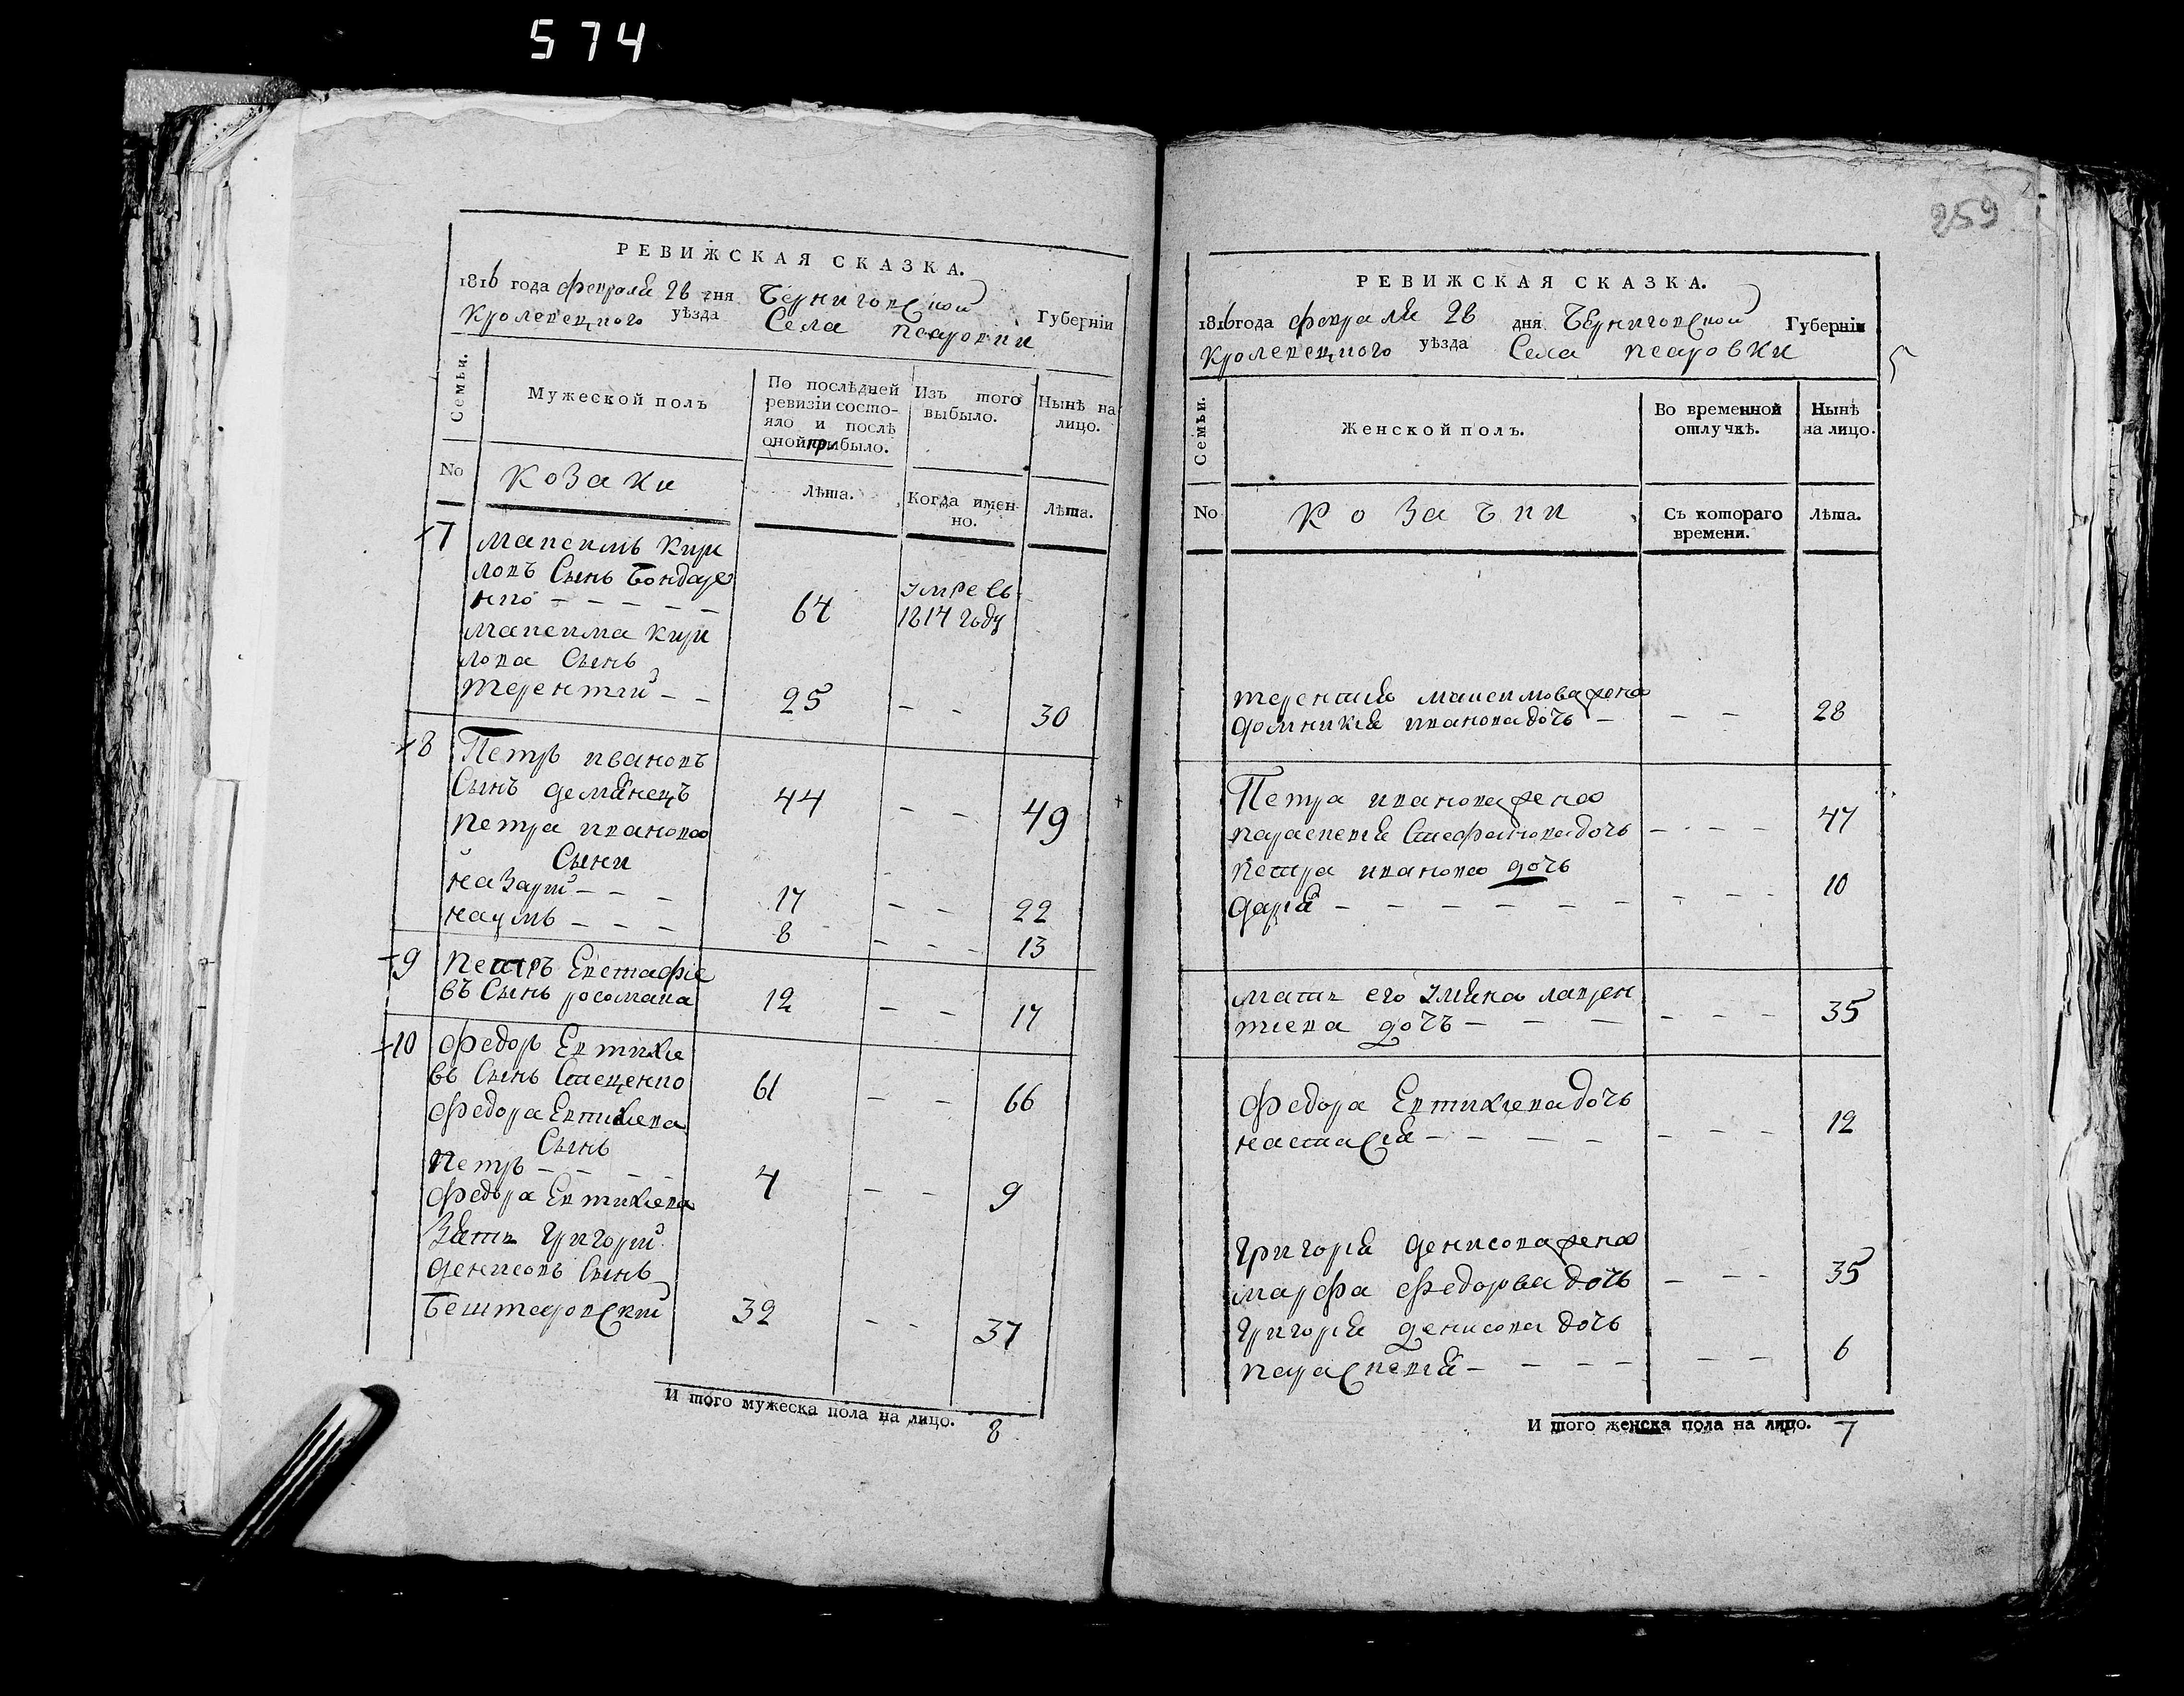 574
РЕВИЖСКАЯ СКАЗКА.
1816 года февраля 28 дня Черниговской Губерніи
Кролевецкого уѣзда Села
Семьи.
Мужеской полъ
По послѣдней
ревизіи состо-
яло и послѣ
оной прибыло.
Изъ того
выбыло.
Нынѣ на
лицо.
No
козаки
Лѣта.
Когда имен-
но.
Лѣта.
7 Максимъ Кири
ловъ Сынъ Бондаре
нко 64 умре въ
1814 году
Максима Кири
лова Сынъ
терентий 25 30
8 Петръ ивановъ
Сынъ демянецъ 44 49
петра иванова
Сыни
назарий 17 22
наумъ 8 13
9 Петръ Евстафіе
въ Сынъ росомаха 12 17
10 Федоръ Евтихіе
въ Сынъ Стеценко 61 66
Федора Евтихіева
Сынъ
Петръ 4 9
Федора Евтихіева
Зять григорий
денисовъ Сынъ
32 37
И того мужеска пола на лицо. 8
259
РЕВИЖСКАЯ СКАЗКА.
1816 года февраля 28 дня Черниговской Губерніи
Кролевецкого уѣзда Села
5
Семьи.
Женской полъ.
Во временной
отлучкѣ.
Нынѣ
на лицо.
No
козачки
Съ котораго
времени.
Лѣта.
терентия максимова жена
домникия иванова дочь 28
Петра иванова жена
параскевия Стефанова дочь 47
петра иванова дочь
дария 10
мать его улияна лаврен
тиева дочь 35
Федора Евтихіева дочь
настасия 12
григория денисова жена
марфа Федорва дочь 35
григория денисова дочь
параскевия 6
И того женска пола на лицо. 7